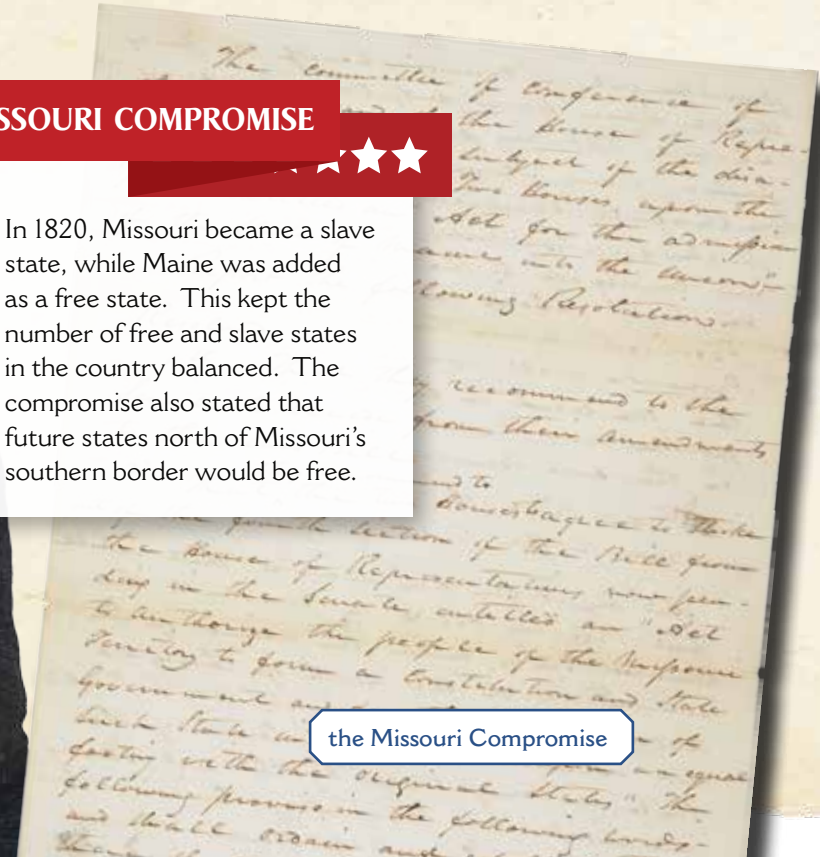 SSOURI COMPROMISE
In 1820, Missouri became a slave
state, while Maine was added
as a free state. This kept the
number of free and slave states
in the country balanced. The
compromise also stated that
future states north of Missouri's
southern border would be free.
The committee of Conference of
the House of Repre-
subject of the disa-
Two Houses, upon the
Act for the admission
into the Union,"
following Resolution.
recommend to the
from their amendments
to
Houses agree to strike
fourth section of the Bill from
the House of Representatives, now pen-
ding in the Senate, entitled an "Act
to authorize the people of the Missouri
Territory to form a Constitution and State
Government and
such State of
the Missouri Compromise
an equal
footing with the original States" The
following proviso in the following words-
and shall ordain and